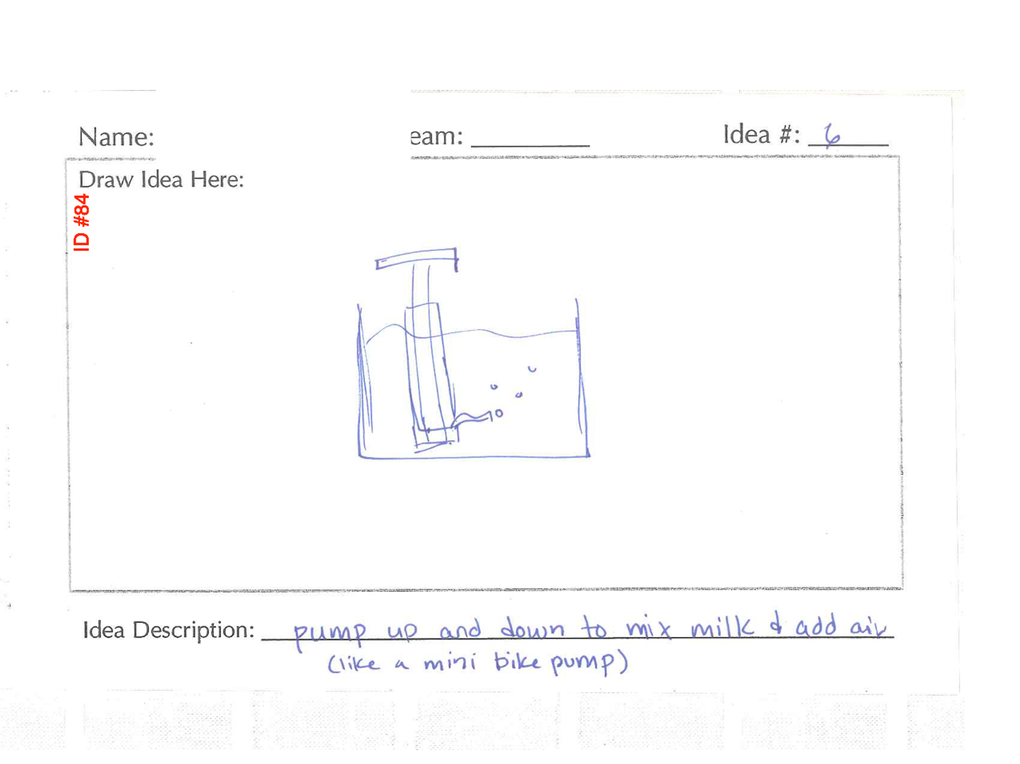 Name: eam: Idea #: 6
Draw Idea Here:
ID #84
Idea Description: pump up and down to mix milk & add air
(like a mini bike pump)